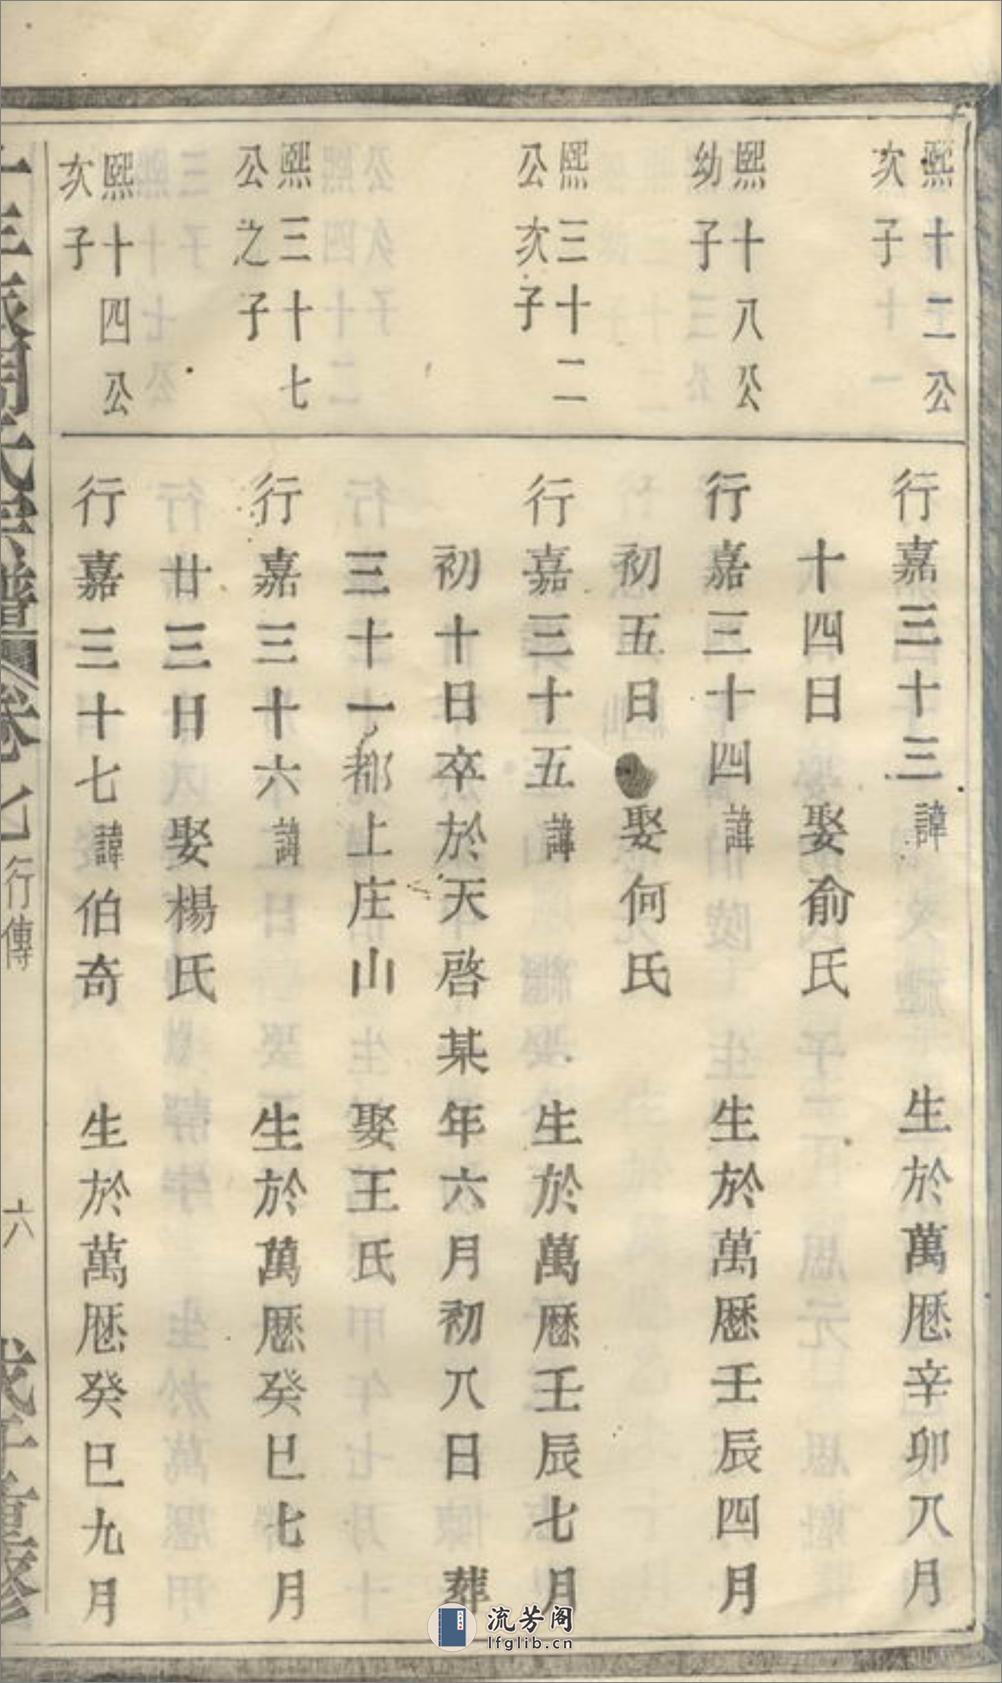 熙十二公
次子
行嘉三十三諱 生於萬厯辛卯八月
十四日 娶俞氏
熙十八公
幼子
行嘉三十四諱 生於萬厯壬辰四月
初五日 娶何氏
熙三十二
公次子
行嘉三十五諱 生於萬厯壬辰七月
初十日卒於天啓某年六月初八日 葬
三十一都上庄山 娶王氏
熙三十七
公之子
行嘉三十六諱 生於萬厯癸巳七月
廿三日 娶楊氏
熙十四公
次子
行嘉三十七諱伯奇 生於萬厯癸巳九月
宗譜 卷七 行傳 六 戊子重修
流芳阁
lfglib.cn